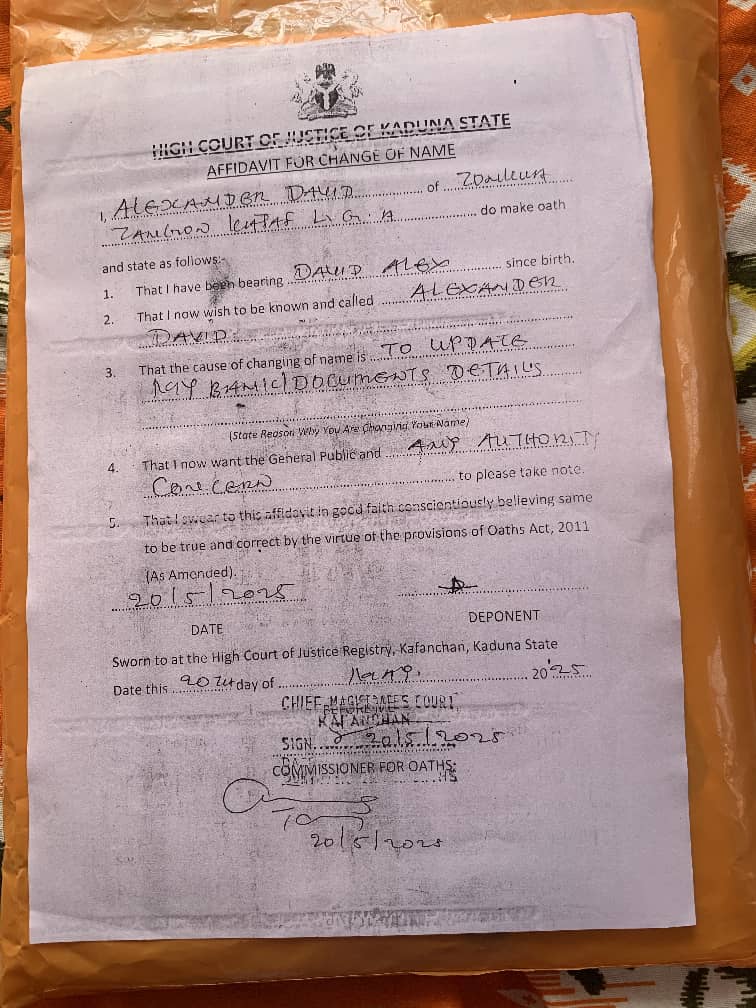 HIGH COURT OF JUSTICE OF KADUNA STATE
AFFIDAVIT FOR CHANGE OF NAME
I, ALEXANDER DAVID of
ZANGON KATAF L.G.A do make oath
and state as follows:-
1. That I have been bearing DAVID ALEX since birth.
2. That I now wish to be known and called ALEXANDER
DAVID
3. That the cause of changing of name is TO UPDATE
MY BANK/DOCUMENTS DETAILS
(State Reason Why You Are Changing Your Name)
4. That I now want the General Public and ANY AUTHORITY
CONCERN to please take note.
5. That I swear to this affidavit in good faith conscientiously believing same
to be true and correct by the virtue of the provisions of Oaths Act, 2011
(As Amended).
20/5/2025
DATE DEPONENT
Sworn to at the High Court of Justice Registry, Kafanchan, Kaduna State
Date this 20th day of May, 2025
CHIEF MAGISTRATES COURT
KAFANCHAN
SIGN 20/5/2025
COMMISSIONER FOR OATHS
20/5/2025